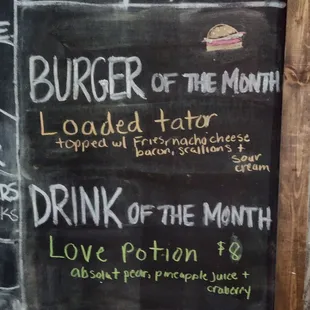 BURGER OF THE MONTH
Loaded tator
topped w/ Fries, nacho cheese
bacon, scallions +
sour
cream
DRINK OF THE MONTH
Love Potion $8
absolut pear, pineapple juice +
craberry